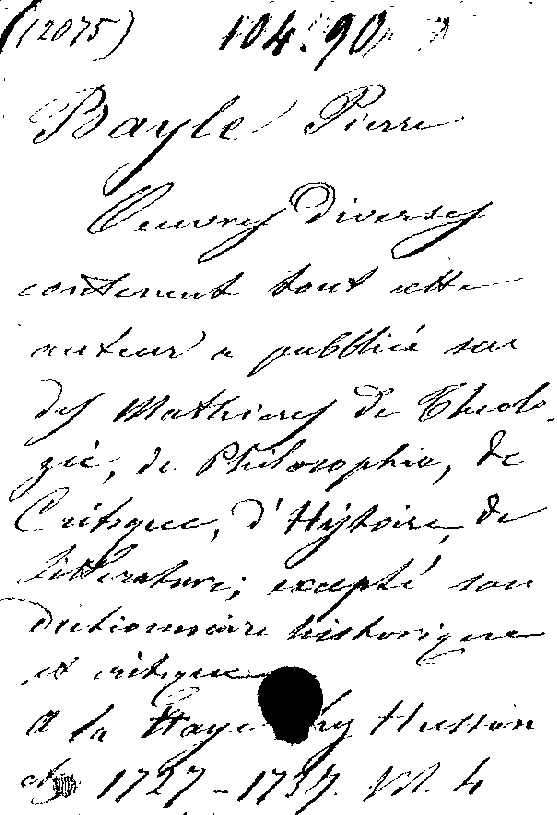 (12075) 104.90
Bayle Pierre
Oeuvres diverses
contenent tout cette
auteur a publié sur
des Mathieres de Theolo-
gie, de Philosophie, de
Critique, d'Hystoire, de
litterature; excepté son
dictionnaire historique
et critique
a la Haye Husson
1727-1737. Vol. 4